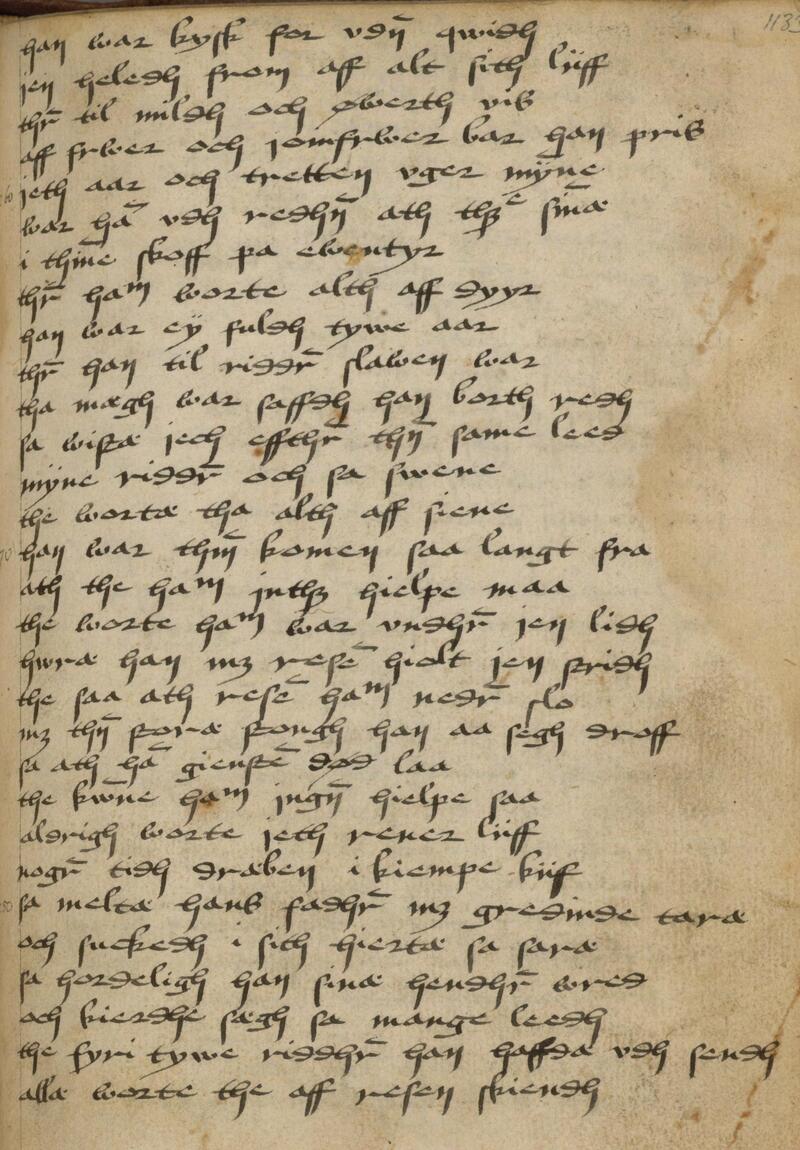 113
han war kysk for vdn̄ qwidh
jen heledh from aff alt sith liiff
thr̄ til mildh och øwerth vis
aff frwer och jomfrwer bar han pris
jeth aar och tretten vger mÿne
war hā vdh redhn̄ ath thꝫ sinæ
i thīne skoff pa ewentyr
thr̄ ham worte alth aff dyyr
han war ey fuldh tywe aar
thr̄ han til riddr̄ slawen war
tha mægh war saffdh han borth redh
sa wistæ jech effthr̄ thn̄ same leed
myne riddr̄ och sa swene
the wortæ tha alth aff siene
70 han war thm̄ komen saa langt fra
ath the ham inthꝫ hielpe maa
the worte ham war vndhr̄ jen lidh
hwræ han mꝫ resē hiolt jen stridh
the saa ath resē ham nedr̄ slo
mꝫ thn̄ storæ stongh han aa segh droff
sa ath hā gienstē død laa
the kwn̄e ham ingn̄ hielpe saa
aldrigh worte jeth rener liiff
nogr̄ tidh dræben i kiempe kiif
80 sa meltæ hans fadhr̄ mꝫ gredinde taræ
och suckedh i sith hiertæ sa saræ
sa hordeligh han sinæ hendhr̄ wred
och kierdhe sægh sa mange leedh
the fyri tywe riddhr̄ han haffdæ vdh sendh
allæ worte the aff resen skiendh